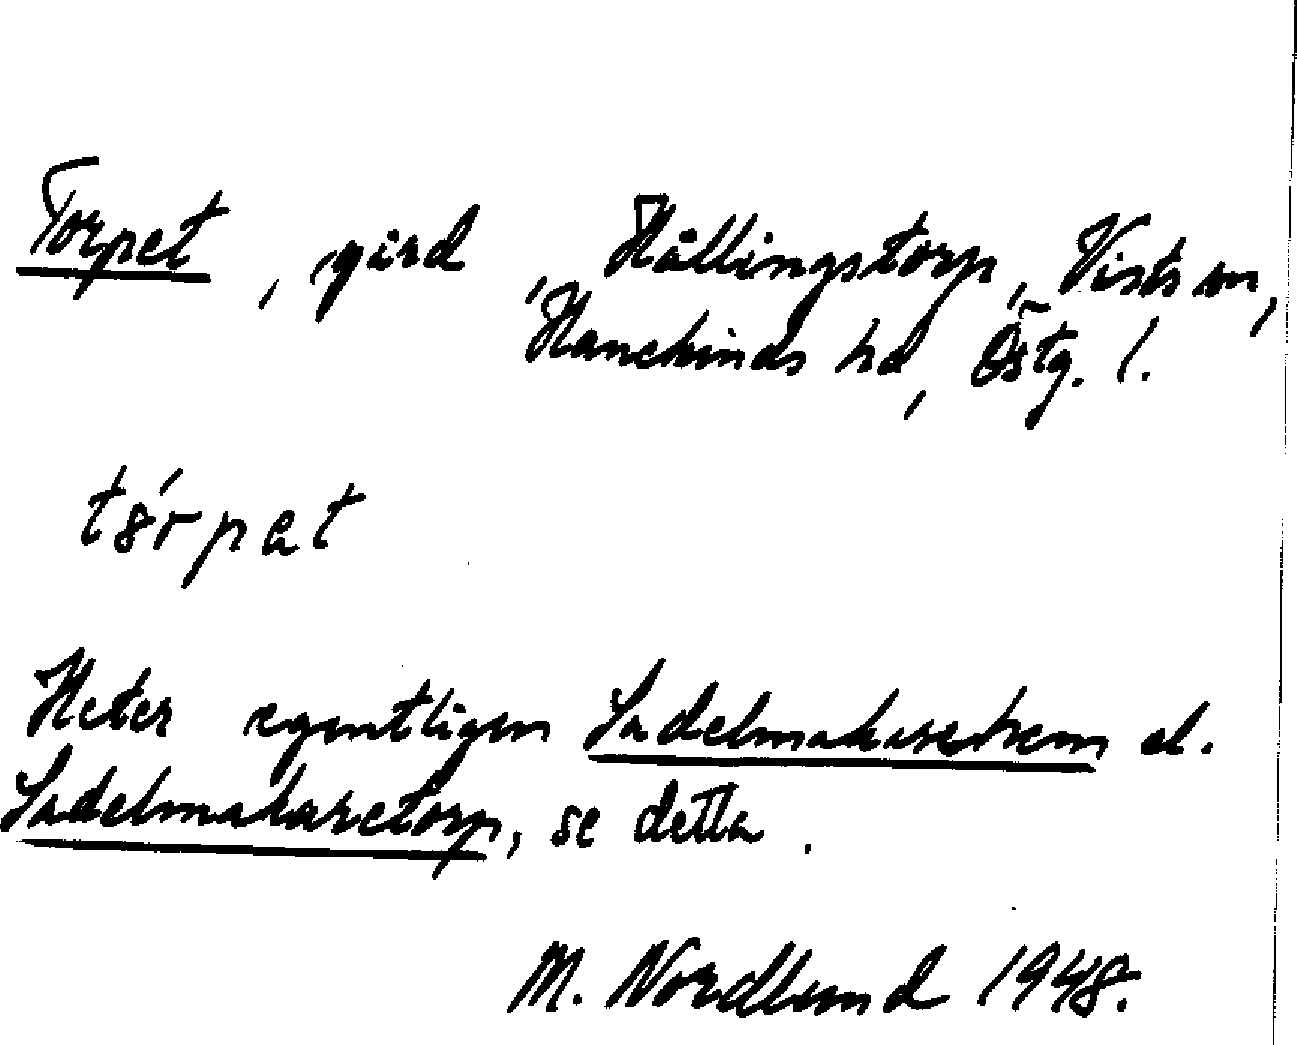 Torpet, gård, Hällingstorp, Vists sn,
Hanekinds hd, Östg. l.
tsŕpat
Heter egentligen Sadelmakarehem el.
Sadelmakaretorp, se detta.
M. Nordlund 1948.